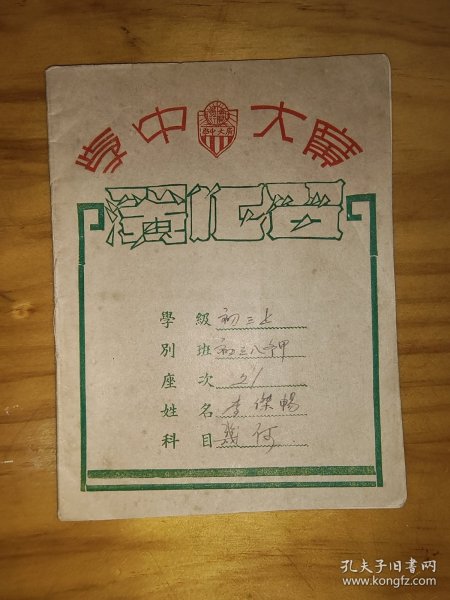 廣大中學
廣大中學
學級 初三上
別班 初三八午甲
座次 21
姓名 李傑暢
科目 幾何
孔夫子旧书网
www.kongfz.com